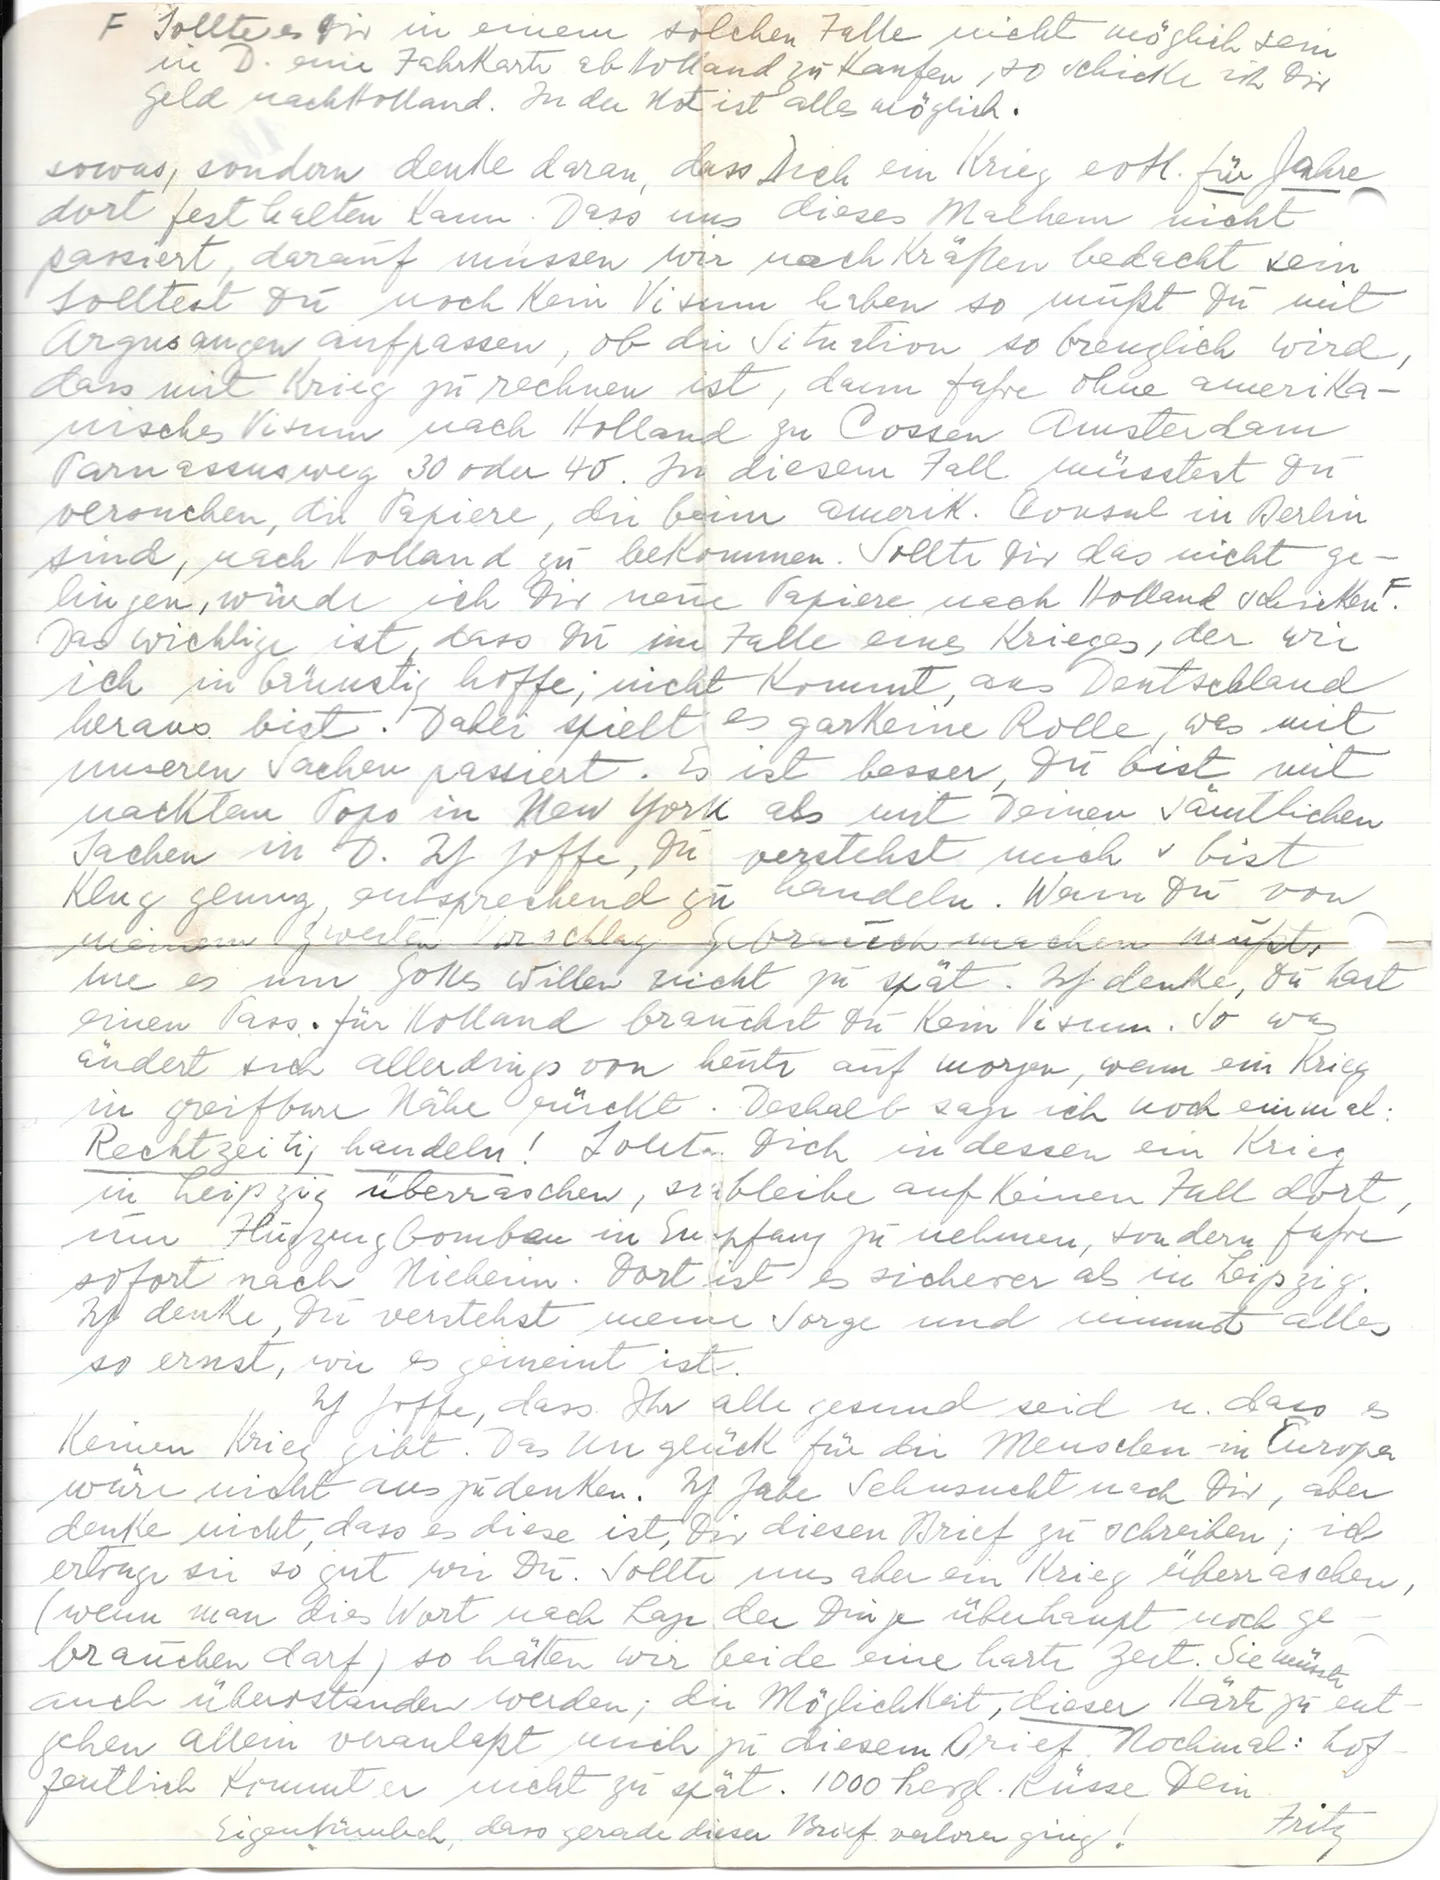 F Sollte es Dir in einem solchen Falle nicht möglich sein
in D. eine Fahrkarte ab Holland zu kaufen, so schicke ich Dir
Geld nach Holland. In der Not ist alles möglich.
sowas, sondern denke daran, dass Dich ein Krieg evtl. für Jahre
dort festhalten kann. Dass uns dieses Malheur nicht
passiert, darauf müssen wir nach Kräften bedacht sein
Solltest Du noch kein Visum haben so mußt Du mit
Argusaugen aufpassen, ob die Situation so brenzlich wird,
dass mit Krieg zu rechnen ist, dann fahre ohne amerika-
nisches Visum nach Holland zu Cossen Amsterdam
Parnassusweg 30 oder 40. In diesem Fall müsstest Du
versuchen, die Papiere, die beim amerik. Consul in Berlin
sind, nach Holland zu bekommen. Sollte Dir das nicht ge-
lingen, würde ich Dir neue Papiere nach Holland schicken F.
Das wichtige ist, dass Du im Falle eines Krieges, der wie
ich inbrünstig hoffe, nicht kommt, aus Deutschland
heraus bist! Dabei spielt es garkeine Rolle, was mit
unseren Sachen passiert. Es ist besser, Du bist mit
nacktem Popo in New York als mit Deinen sämtlichen
Sachen in D. Ich hoffe, Du verstehst mich u bist
klug genug, entsprechend zu handeln. Wenn Du von
meinem zweiten Vorschlag Gebrauch machen mußt,
tue es um Gottes Willen nicht zu spät. Ich denke, Du hast
einen Pass. für Holland brauchst Du kein Visum. So was
ändert sich allerdings von heute auf morgen, wenn ein Krieg
in greifbare Nähe rückt. Deshalb sage ich noch einmal:
Rechtzeitig handeln! Sollte Dich indessen ein Krieg
in Leipzig überraschen, so bleibe auf keinen Fall dort,
um Flugzeugbomben in Empfang zu nehmen, sondern fahre
sofort nach Nieheim. Dort ist es sicherer als in Leipzig.
Ich denke, Du verstehst meine Sorge und nimmst alles
so ernst, wie es gemeint ist.
Ich hoffe, dass Ihr alle gesund seid u. dass es
keinen Krieg gibt. Das Unglück für die Menschen in Europa
wäre nicht auszudenken. Ich habe Sehnsucht nach Dir, aber
denke nicht, dass es diese ist, Dir diesen Brief zu schreiben; ich
ertrage sie so gut wie Du. Sollte uns aber ein Krieg überraschen,
(wenn man dies Wort nach Lage der Dinge überhaupt noch ge-
brauchen darf) so hätten wir beide eine harte Zeit. Sie müsste
auch überstanden werden; die Möglichkeit, dieser Härte zu ent-
gehen allein veranlaßt mich zu diesem Brief. Nochmal: hof-
fentlich kommt er nicht zu spät. 1000 herzl. Küsse Dein
Fritz
Eigentümlich, dass gerade dieser Brief verloren ging!